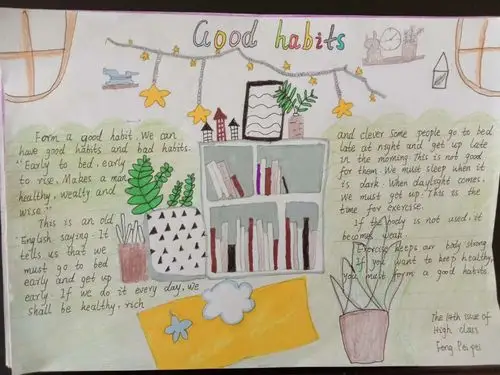 Good habits
Form a good habit. We can
have good habits and bad habits.
"Early to bed, early
to rise. Makes a man
healthy, wealty and
wise."
This is an old
English saying. It
tells us that we
must go to bed
early and get up
early. If we do it every day, we
shall be healthy, rich
and clever some people go to bed
late at night and get up late
in the morning. This is not good
for them. We must sleep when it
is dark. When daylight comes,
We must got up. This is the
time for exercise.
If the body is not used, it
becomes weak.
Exercise keeps our body strong.
If you want to keep healthy,
you must form a good habits.
The 14th issue of
High class
Feng Pei pei